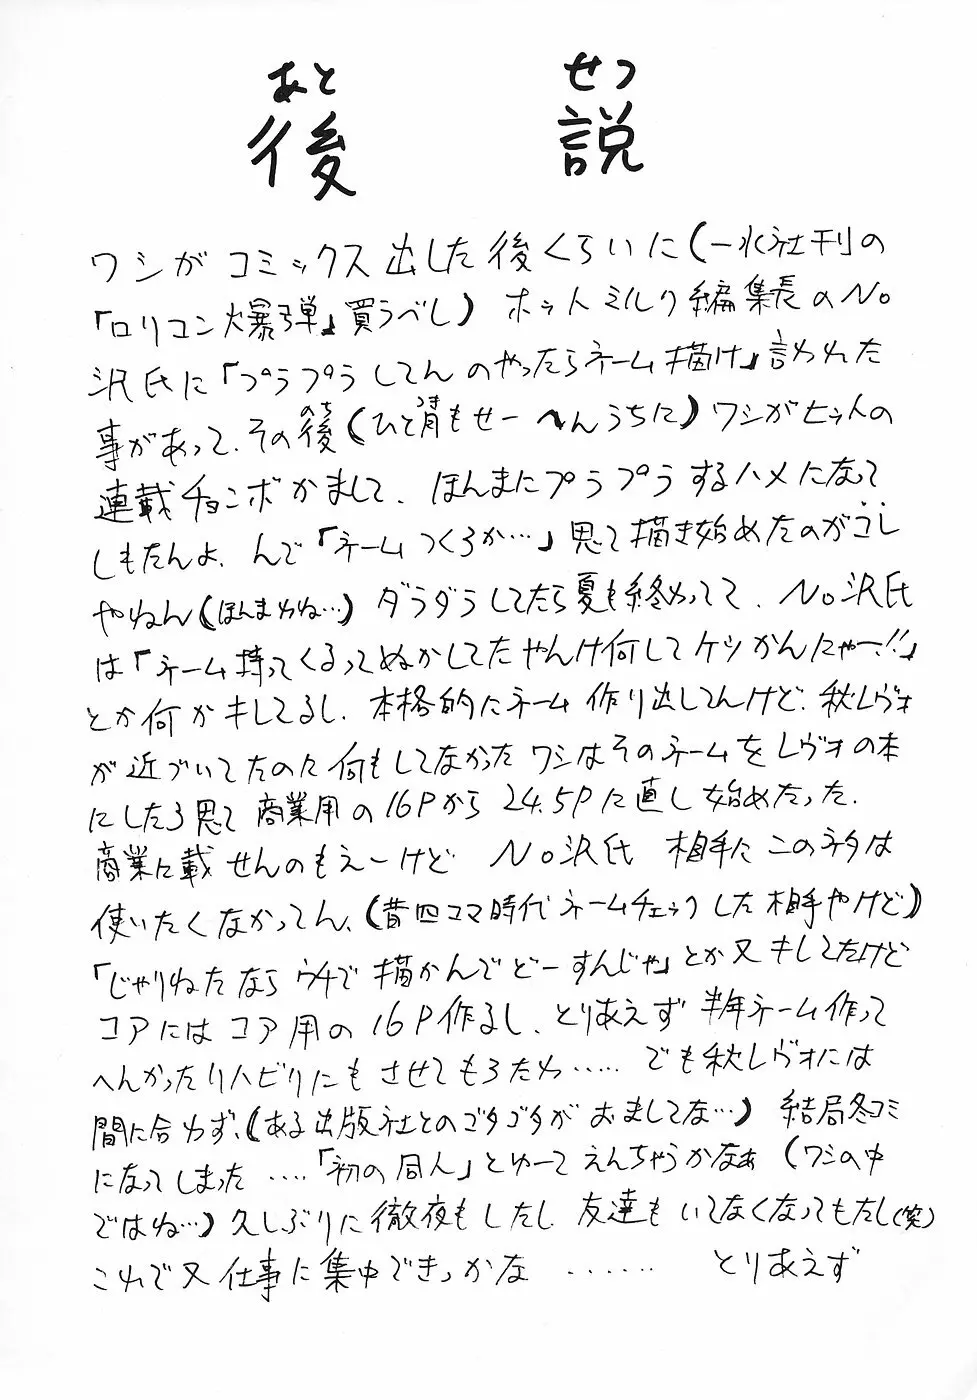 あと せつ
後 説
ワシがコミックス出した後くらいに(一水社刊の
「ロリコン爆弾」買うべし)ホットミルク編集長のNo
沢氏に「プラプラしてんのやったらネーム描け」言われた
事があって、その後(のち)(ひと月(つき)もせーへんうちに)ワシがヒットの
連載チョンボかまして、ほんまにプラプラするハメになって
しもたんよ、んで「ネームつくろか…」思て描き始めたのがコレ
やねん(ほんまかね…)ダラダラしてたら夏も終わってて、No沢氏
は「ネーム持ってくるってぬかしてたやんけ何してケツかんにゃー!!」
とか何かキしてるし、本格的にネーム作り出してんけど、秋レヴォ
が近づいてたのに何もしてなかったワシはそのネームをレヴォの本
にしたろ思て商業用の16Pから24.5Pに直し始めたった.
商業に載せんのもえーけど No沢氏 相手にこのネタは
使いたくなかってん、(昔四コマ時代ネームチェックした相手やけど)
「じゃりねたならウチで描かんでどーすんじゃ」とか又キしてたけど
コアにはコア用の16P作るし、とりあえず半年ネーム作って
へんかったリハビリにもさせてもろたわ…… でも秋レヴォには
間に合わず、(ある出版社とのゴタゴタがおましてな…) 結局冬コミ
になってしまった ….「初の同人」とゆーてえんちゃうかなぁ(ワシの中
ではね…)久しぶりに徹夜もしたし 友達もいてなくなってもたし(笑)
これで又仕事に集中できっかな …… とりあえず